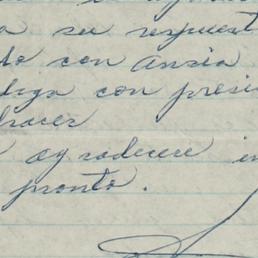 a su respuest
do con ansia
diga con presi
hacer
agradecere in
pronto.